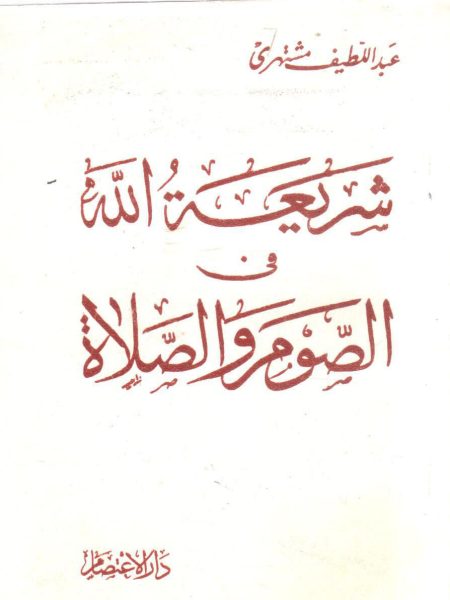 عبد اللطيف مشتهرى
شَريعَة ُاللَّه
فى
الصَّوْمِ وَالصَّلاة
دار الاعتصام